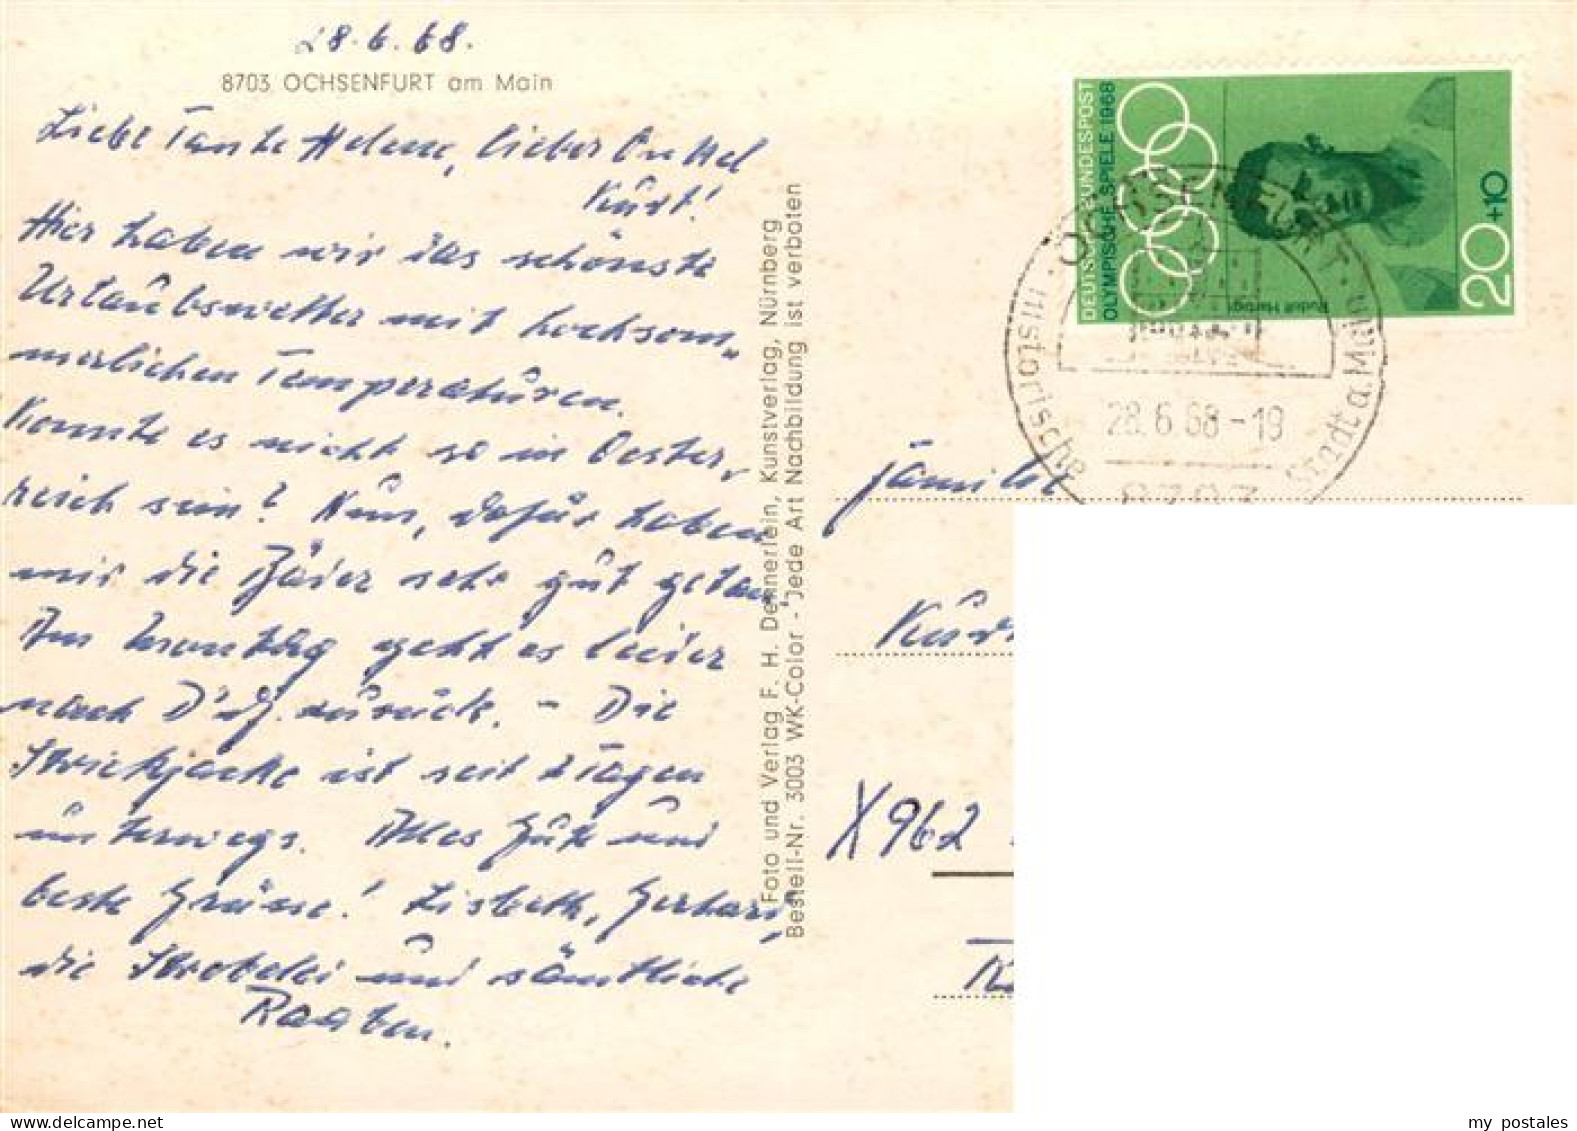 28.6.68.
8703 OCHSENFURT am Main
Liebe Tante Helene, lieber Onkel
Kurt!
Hier haben wir das schönste
Urlaubswetter mit hochsom„
merlichen Temperaturen.
Konnte es nicht so in Oester„
reich sein? Nun, dafür haben
mir die Bäder sehr gut getan.
Am Montag geht es leider
nach D'df. zurück. - Die
Strickjacke ist seit 2 Tagen
unterwegs. Alles Gute und
beste Grüsse! Lisbeth, Gerhard,
die und sämtliche
Raaben.
Foto und Verlag F. H. Dennerlein, Kunstverlag, Nürnberg
Bestell-Nr. 3003 WK-Color - Jede Art Nachbildung ist verboten
DEUTSCHE BUNDESPOST
OLYMPISCHE SPIELE 1968
Rudolf Harbig
20+10
OCHSENFURT
Historische Stadt a. Main
28.6.68-19
8703
Familie
X962
my postales